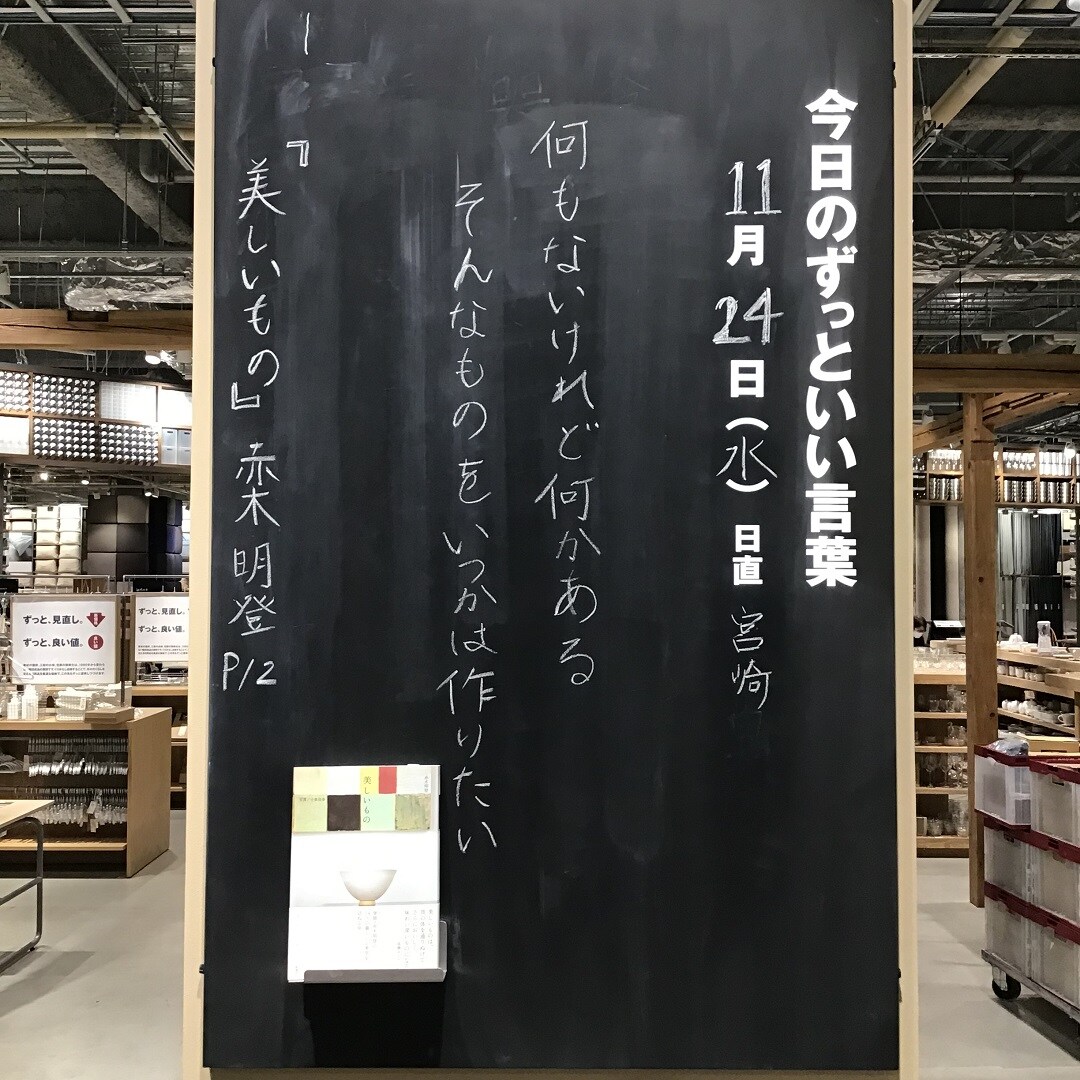 今日のずっといい言葉
11月24日(水) 日直 宮崎
何もないけれど何かある
そんなものをいつかは作りたい
『美しいもの』赤木明登 P12
美しいもの
ずっと、見直し。
ずっと、良い値。
ずっと、見直し。
ずっと、良い値。